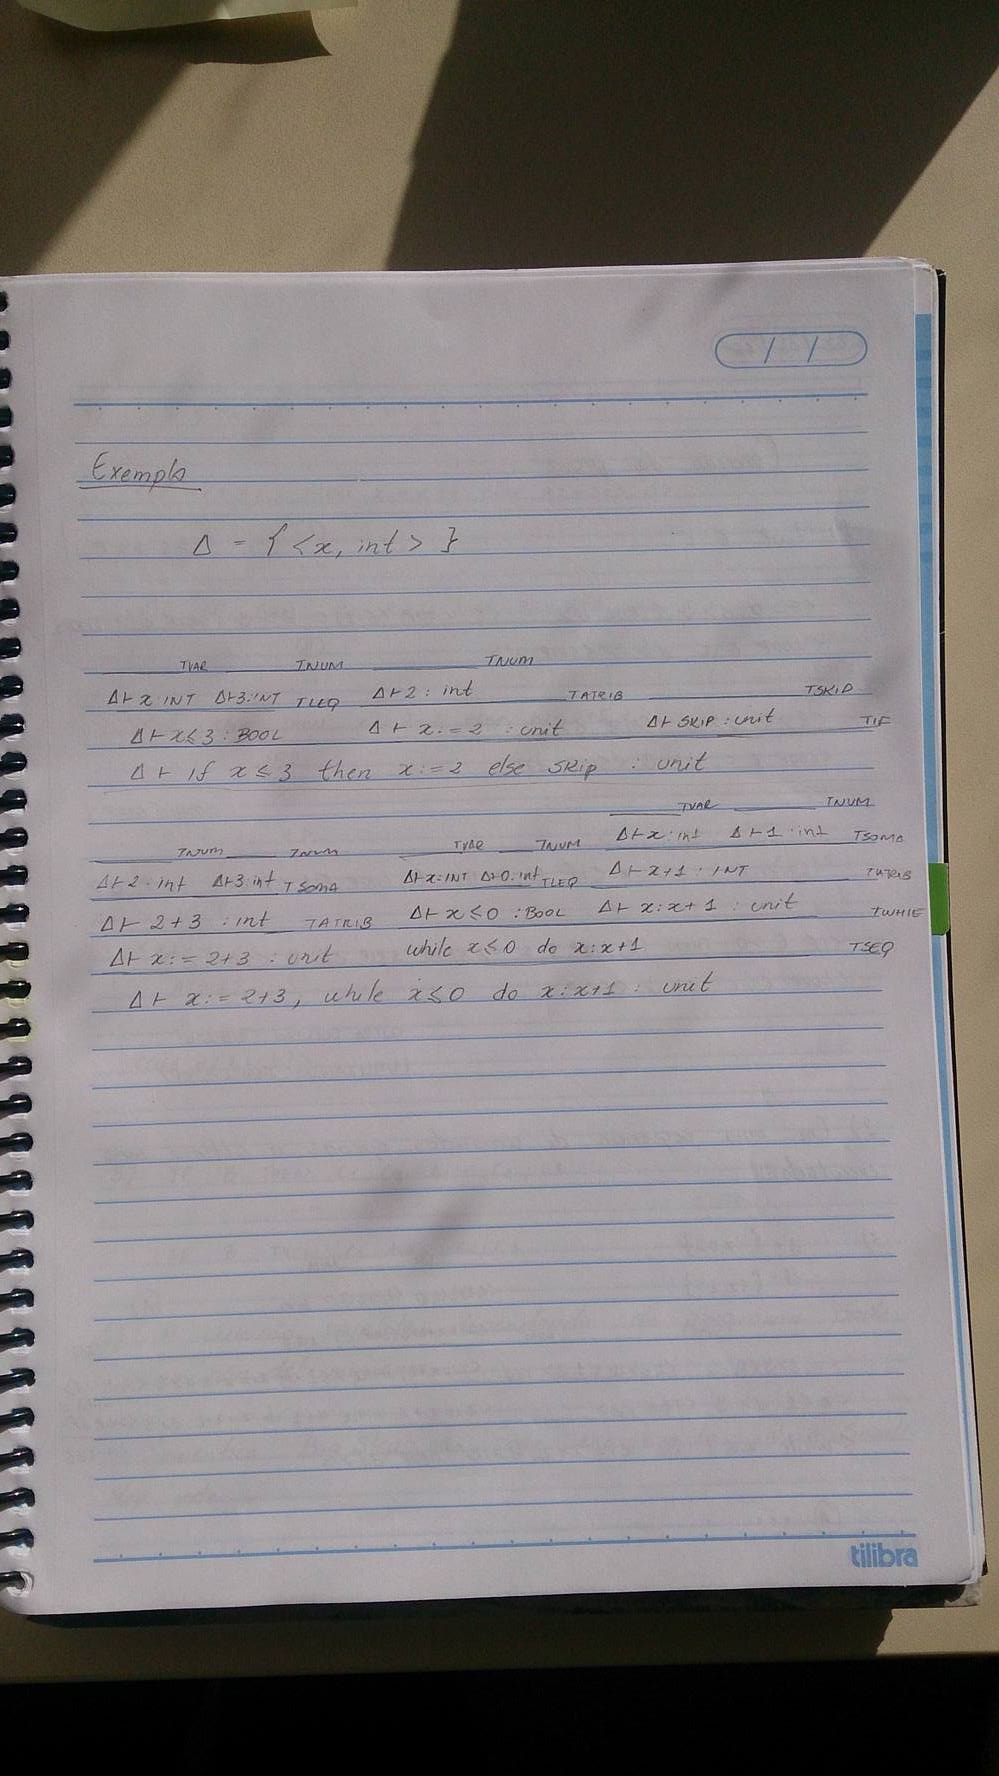 / /
Exemplo
Δ = { <x, int> }
TVAR TNUM TNUM
Δ⊢ x:INT Δ⊢3:INT TLEQ Δ⊢2 : int TATRIB TSKIP
Δ⊢ x≤3 : BOOL Δ⊢ x:=2 : unit Δ⊢ SKIP : unit TIF
Δ⊢ if x≤3 then x:=2 else skip : unit
TVAR TNUM
TNUM TNUM TVAR TNUM Δ⊢x:int Δ⊢1:int TSOMA
Δ⊢2:int Δ⊢3:int TSOMA Δ⊢x:INT Δ⊢0:int TLEQ Δ⊢x+1 : INT TATRIB
Δ⊢ 2+3 : int TATRIB Δ⊢ x≤0 : BOOL Δ⊢ x:x+1 : unit TWHIE
Δ⊢ x:=2+3 : unit while x≤0 do x:x+1 TSEQ
Δ⊢ x:=2+3, while x≤0 do x:x+1 : unit
tilibra